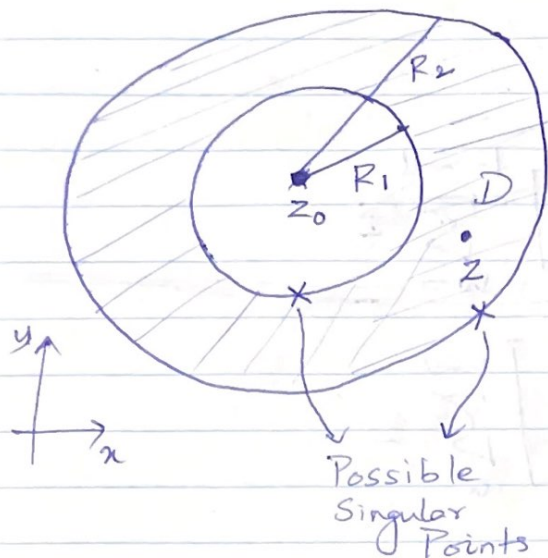 R2
R1
z0
D
z
y
x
Possible
Singular
Points